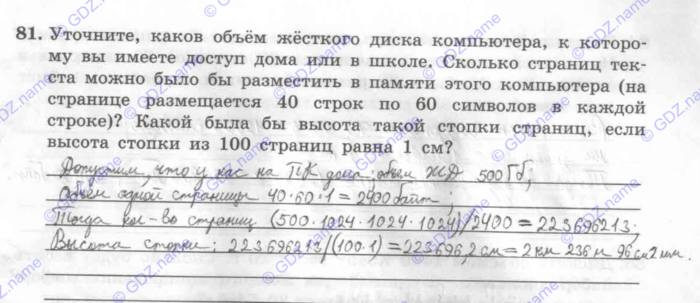 81. Уточните, каков объём жёсткого диска компьютера, к которо-
му вы имеете доступ дома или в школе. Сколько страниц тек-
ста можно было бы разместить в памяти этого компьютера (на
странице размещается 40 строк по 60 символов в каждой
строке)? Какой была бы высота такой стопки страниц, если
высота стопки из 100 страниц равна 1 см?
Допустим, что у нас на ПК дома объем ЖД 500 Гб;
Объём одной страницы 40·60·1=2400 байт;
Тогда кол-во страниц (500·1024·1024·1024)/2400=223696213;
Высота стопки: 223696213/(100·1)=223696,2см=2 км 236 м 96 см 2 мм.
© GDZ.name